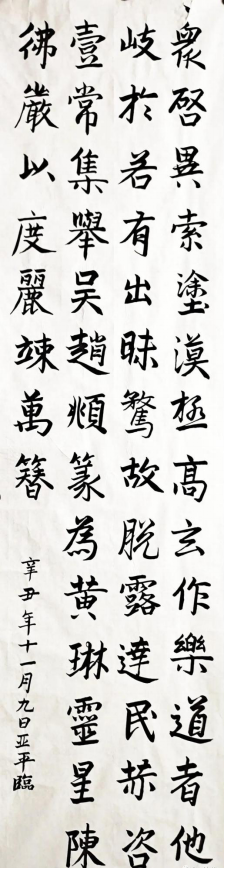 眾啓異索塗漠極高玄作樂道者他
歧於若有出昧驚故脱露達民赫咨
壹常集舉吴趙頫篆為黄琳靈星陳
彿嚴以度麗竦萬簪
辛丑年十一月九日亚平臨